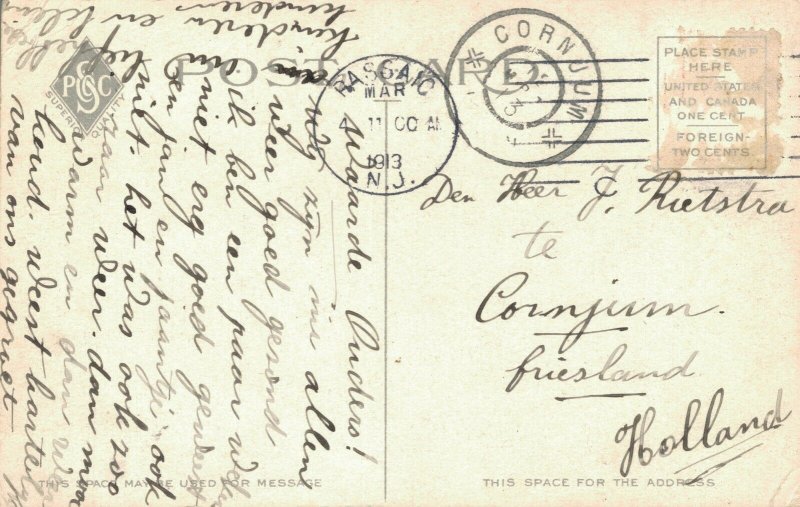 POST CARD
P S C
SUPERIOR QUALITY
PASSAIC
MAR
4
11 00 AM
1913
N.J.
CORNJUM
PLACE STAMP
HERE
UNITED STATES
AND CANADA
ONE CENT
FOREIGN-
TWO CENTS
Den Heer J. Rietstra
te
Cornjum.
friesland
Holland
waarde Ouders!
wij zijn nu allen
weer goed gesond
ik ben een paar
niet erg goed geweest
en jan en jaantje ook
niet. het was ook zoo
zaar weer. dan
warm en dan
koud. weest hartelijk
van ons gegroet
kinderen en
kinderen
THIS SPACE MAY BE USED FOR MESSAGE
THIS SPACE FOR THE ADDRESS